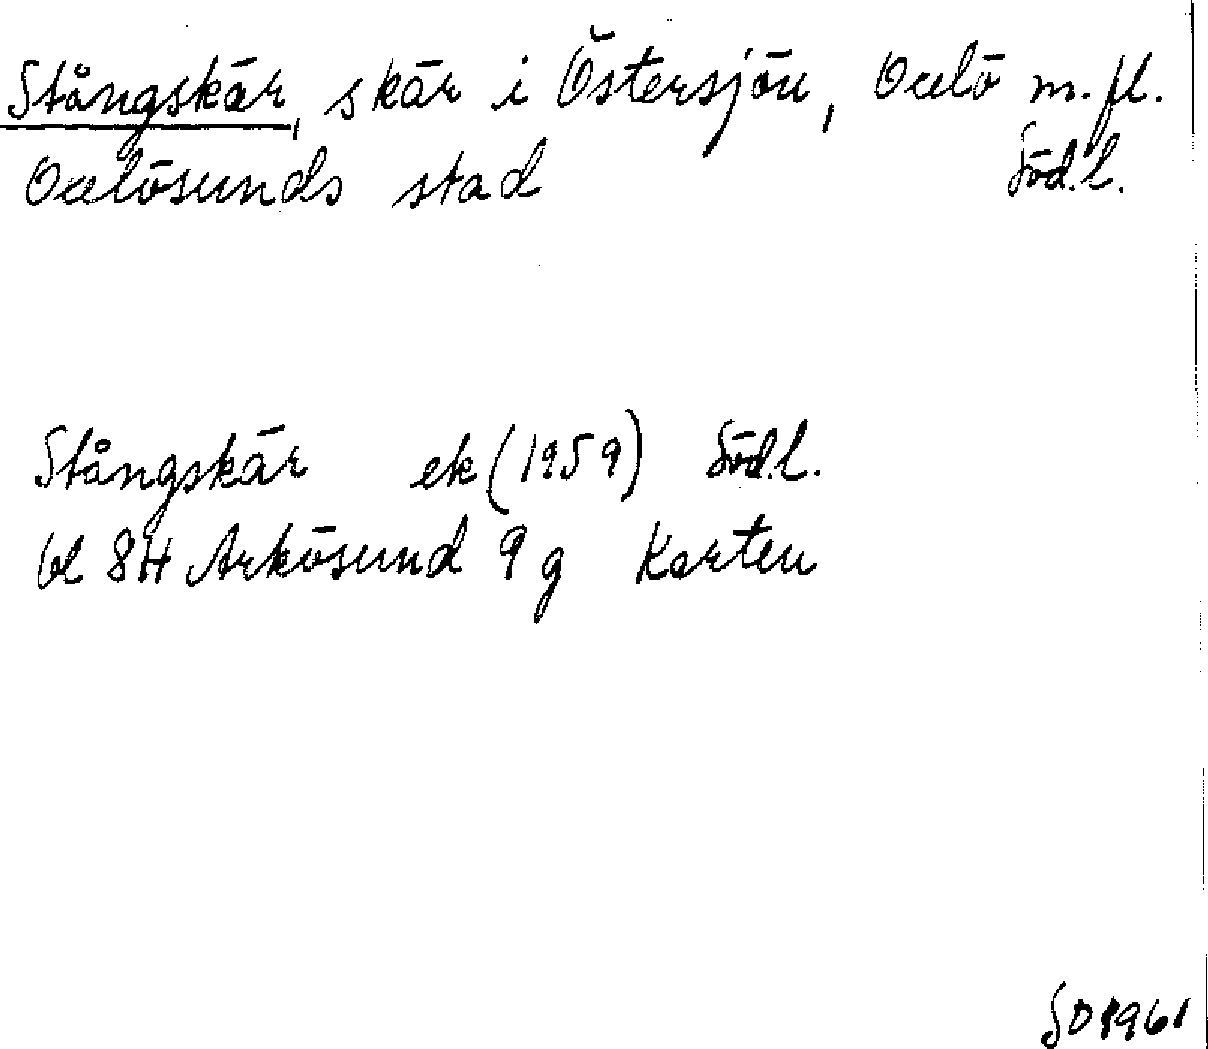 Stångskär, skär i Östersjön, Oxelö m.fl.
Oxelösunds stad Södl.
Stångskär ek (1959) Södl.
bl 8H Arkösund 9 g Karten
SD 1961